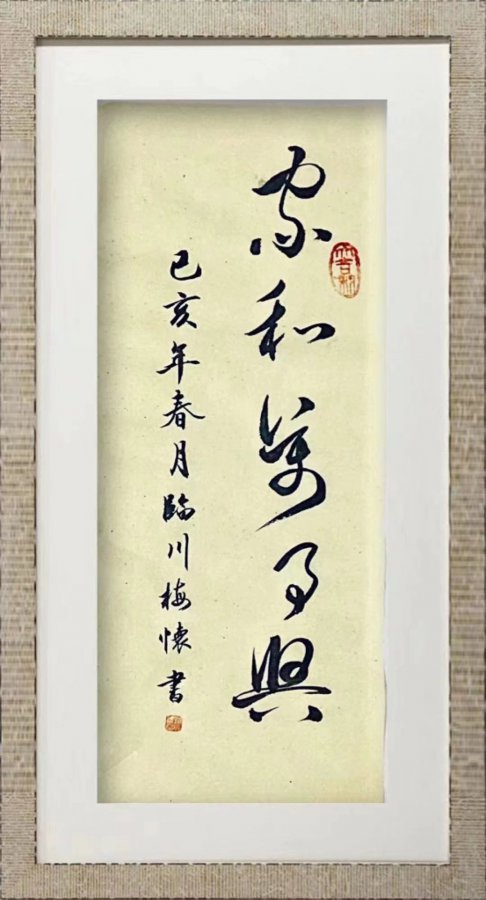 家和萬事興
己亥年春月臨川梅懷書